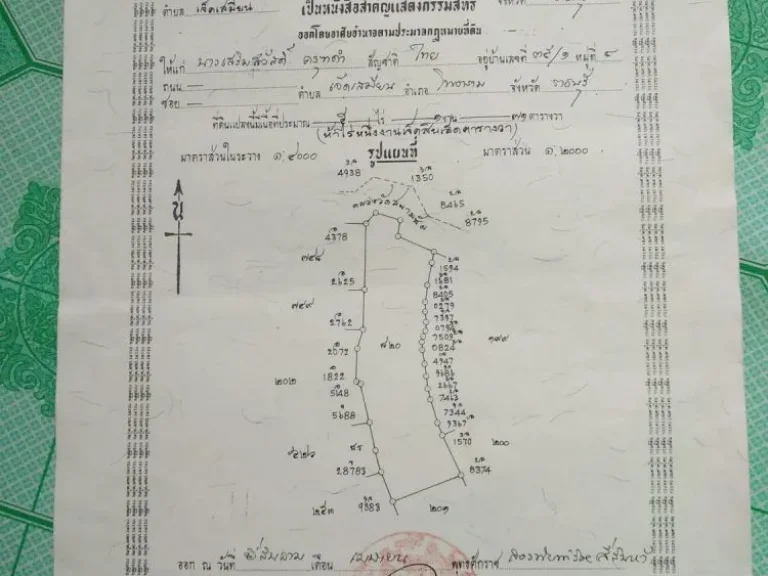 ตำบล เจ็ดเสมียน
เป็นหนังสือสำคัญแสดงกรรมสิทธิ์
จังหวัด
ออกโดยอาศัยอำนาจตามประมวลกฎหมายที่ดิน
ให้แก่ สัญชาติ ไทย อยู่บ้านเลขที่ ๓๕/๑ หมู่ที่ ๔
ถนน — ตำบล เจ็ดเสมียน อำเภอ โพธาราม จังหวัด ราชบุรี
ซอย —
ที่ดินแปลงนี้มีเนื้อที่ประมาณ ๕ ไร่ ๑ งาน ๗๑ ตารางวา
(ห้าไร่หนึ่งงานเจ็ดสิบเอ็ดตารางวา)
มาตราส่วนในระวาง ๑:๔๐๐๐ รูปแผนที่ มาตราส่วน ๑:๒๐๐๐
4938
1350
8465
8795
น
4378
๗๕๘
1594
2625
1681
8405
0279
๗๕๙
7397
2762
079
7509
๘๒๐
๑๙๙
2072
0824
4947
9683
๒๐๒
1822
2667
5148
7413
7344
5688
9367
1570
๒๐๐
๕๕
28783
8374
๒๕๓
9383
๒๐๑
ออก ณ วันที่ ยี่สิบสาม เดือน เมษายน พุทธศักราช